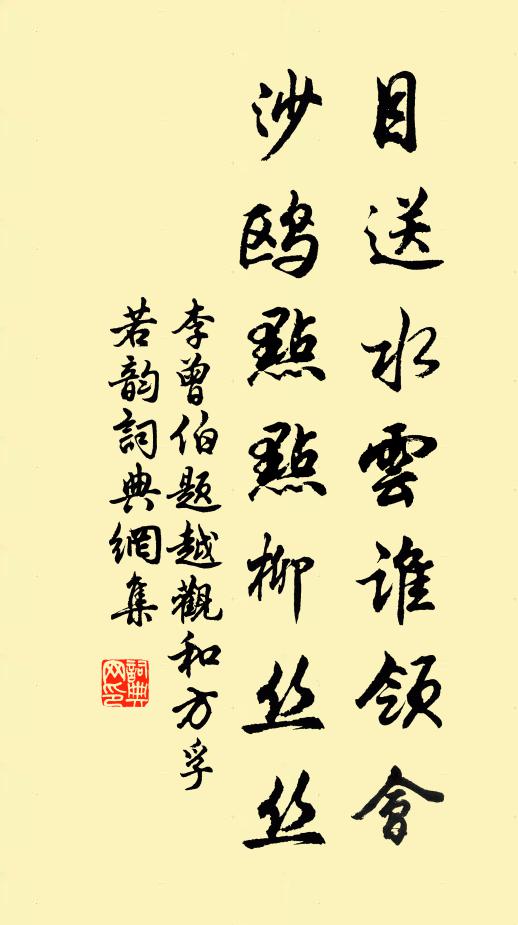 目送水雲誰領會
沙鸥點點柳丝丝
李曾伯题越觀和方孚
若韵詞典網集
詞典
网印